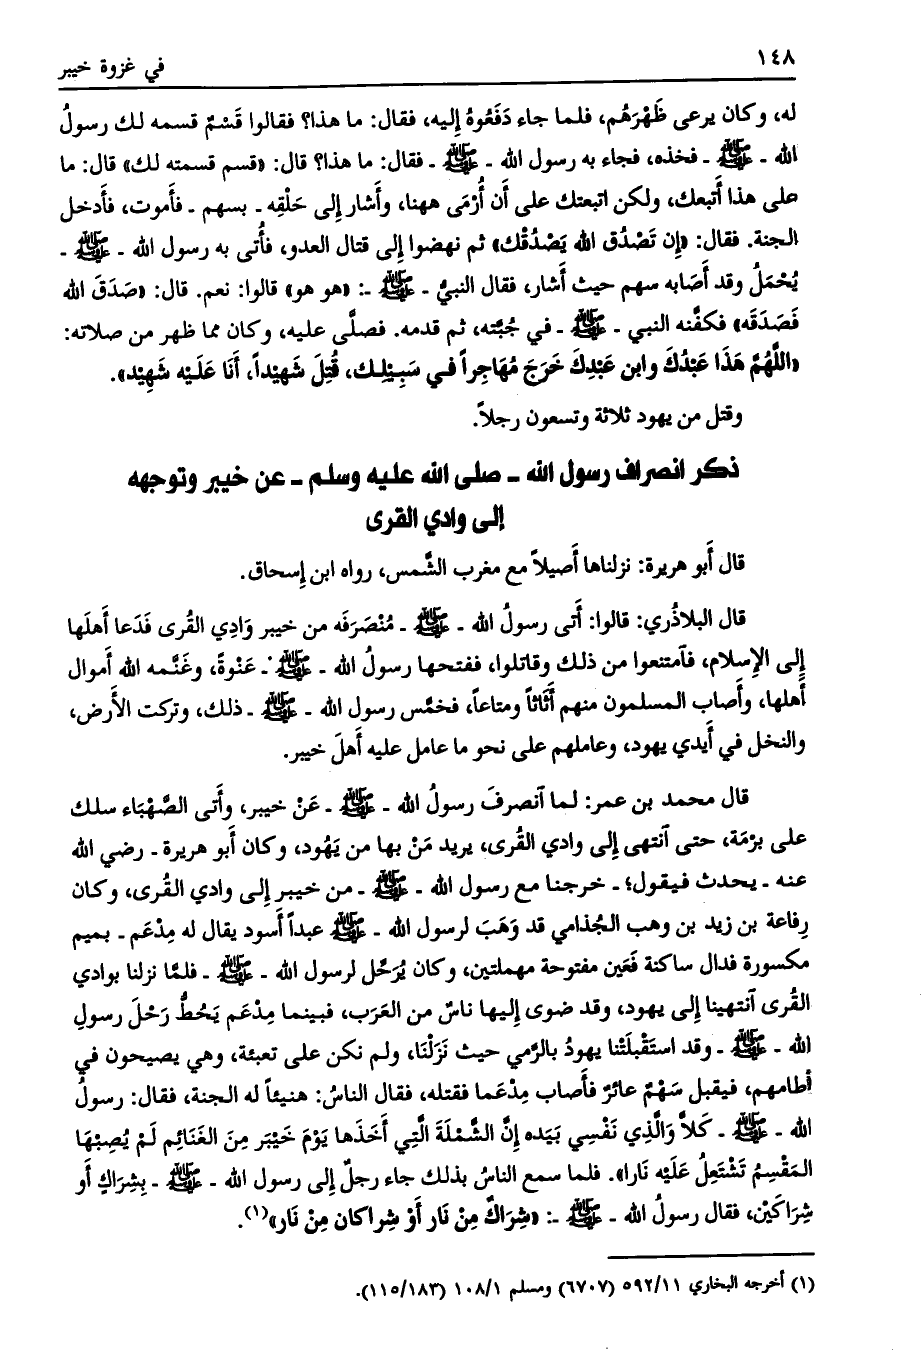 ١٤٨
في غزوة خيبر
له، وكان يرعى ظَهْرَهُم، فلما جاء دَفَعُوهُ إليه، فقال: ما هذا؟ فقالوا قَسْمٌ قسمه لك رسولُ
الله ـ ﷺ ـ فخذه، فجاء به رسول الله ـ ﷺ ـ فقال: ما هذا؟ قال: «قسم قسمته لك» قال: ما
على هذا أَتبعك، ولكن اتبعتك على أَن أُرْمَى ههنا، وأَشار إلى حَلْقِه ـ بسهم ـ فأَموت، فأَدخل
الجنة. فقال: «إِن تَصْدُق الله يَصْدُقْك» ثم نهضوا إلى قتال العدو، فأُتى به رسول الله ـ ﷺ ـ
يُحْمَلُ وقد أَصَابه سهم حيث أَشار، فقال النبيُّ ـ ﷺ ـ: «هو هو» قالوا: نعم. قال: «صَدَقَ الله
فَصَدَقَه» فكفَّنه النبي ـ ﷺ ـ في جُبَّته، ثم قدمه. فصلَّى عليه، وكان مما ظهر من صلاته:
«اللَّهُمَّ هَذَا عَبْدُكَ وابن عَبْدِكَ خَرَجَ مُهَاجِراً في سَبِيْلِك، قُتِلَ شَهِيْداً، أَنَا عَلَيْه شَهِيْد».
وقتل من يهود ثلاثة وتسعون رجلاً.
ذكر انصراف رسول الله ـ صلى الله عليه وسلم ـ عن خيبر وتوجهه
إلى وادي القرى
قال أَبو هريرة: نزلناها أَصيلاً مع مغرب الشَّمس، رواه ابن إسحاق.
قال البلاذُري: قالوا: أَتى رسولُ الله ـ ﷺ ـ مُنْصَرَفَه من خيبر وَادِي القُرى فَدَعا أَهلَها
إلى الإسلام، فآمتنعوا من ذلك وقاتلوا، ففتحها رسولُ الله ـ ﷺ ـ عَنْوةً، وغَنَّمه الله أَموال
أَهلها، وأَصاب المسلمون منهم أَثَاثاً ومتاعاً، فخمَّس رسول الله ـ ﷺ ـ ذلك، وتركت الأَرض،
والنخل في أَيدي يهود، وعاملهم على نحو ما عامل عليه أَهلَ خيبر.
قال محمد بن عمر: لما آنصرفَ رسولُ الله ـ ﷺ ـ عَنْ خيبر، وأَتى الصَّهْبَاء سلك
على برْمَة، حتى آنتهى إلى وادي القُرى، يريد مَنْ بها من يَهُود، وكان أَبو هريرة ـ رضي الله
عنه ـ يحدث فيقول؛ ـ خرجنا مع رسول الله ـ ﷺ ـ من خيبر إلى وادي القُرى، وكان
رِفاعة بن زيد بن وهب الجُذامي قد وَهَبَ لرسول الله ـ ﷺ عبداً أَسود يقال له مِدْعَم ـ بميم
مكسورة فدال ساكنة فَعَين مفتوحة مهملتين، وكان يُرَحِّل لرسول الله ـ ﷺ ـ فلمَّا نزلنا بوادي
القُرى آنتهينا إلى يهود، وقد ضوى إليها ناسٌ من العَرَب، فبينما مِدْعَم يَحُطُّ رَحْلَ رسولِ
الله ـ ﷺ ـ وقد استَقْبلَتْنا يهودُ بالرَّمي حيث نَزَلْنَا، ولم نكن على تعبئة، وهي يصيحون في
أطامهم، فيقبل سَهْمٌ عائرٌ فأَصاب مِدْعَما فقتله، فقال الناسُ: هنيئاً له الجنة، فقال: رسولُ
الله ـ ﷺ ـ كَلاَّ وَالَّذِي نَفْسِي بَيَده إِنَّ الشَّمْلَةَ الَّتِي أَخَذَها يَوْمَ خَيْبَر مِنَ الغَنَائِم لَمْ يُصِبْهَا
المَقْسِمُ تَشْتَعِلُ عَلَيْه نَارا». فلما سمع الناسُ بذلك جاء رجلٌ إلى رسول الله ـ ﷺ ـ بِشِرَاكٍ أَو
شِرَاكَيْن، فقال رسولُ الله ـ ﷺ ـ: «شِرَاكٌ مِنْ نَار أَوْ شِراكان مِنْ نَار»(١).
(١) أخرجه البخاري ٥٩٢/١١ (٦٧٠٧) ومسلم ١٠٨/١ (١١٥/١٨٣).